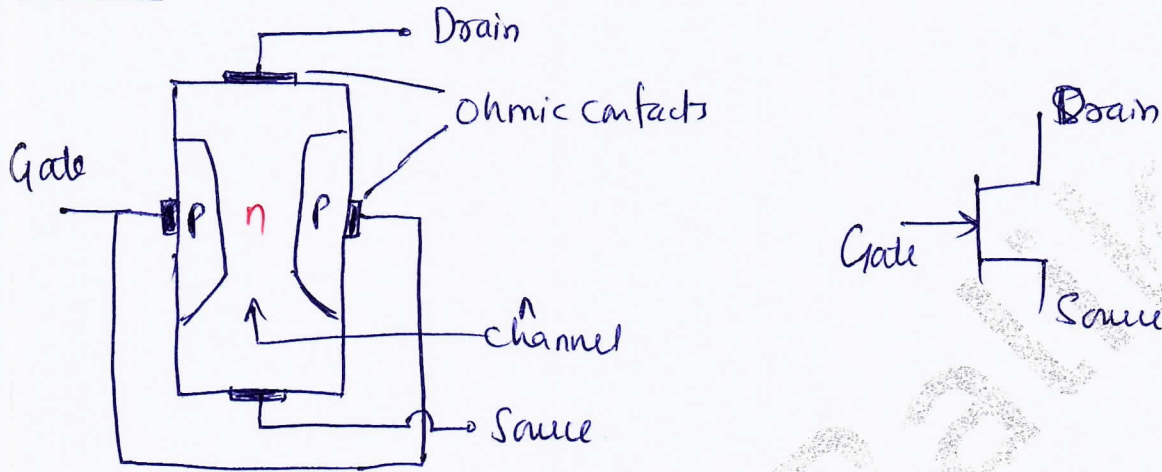 Drain
Ohmic contacts
Gate
P
n
P
channel
Source
Drain
Gate
Source